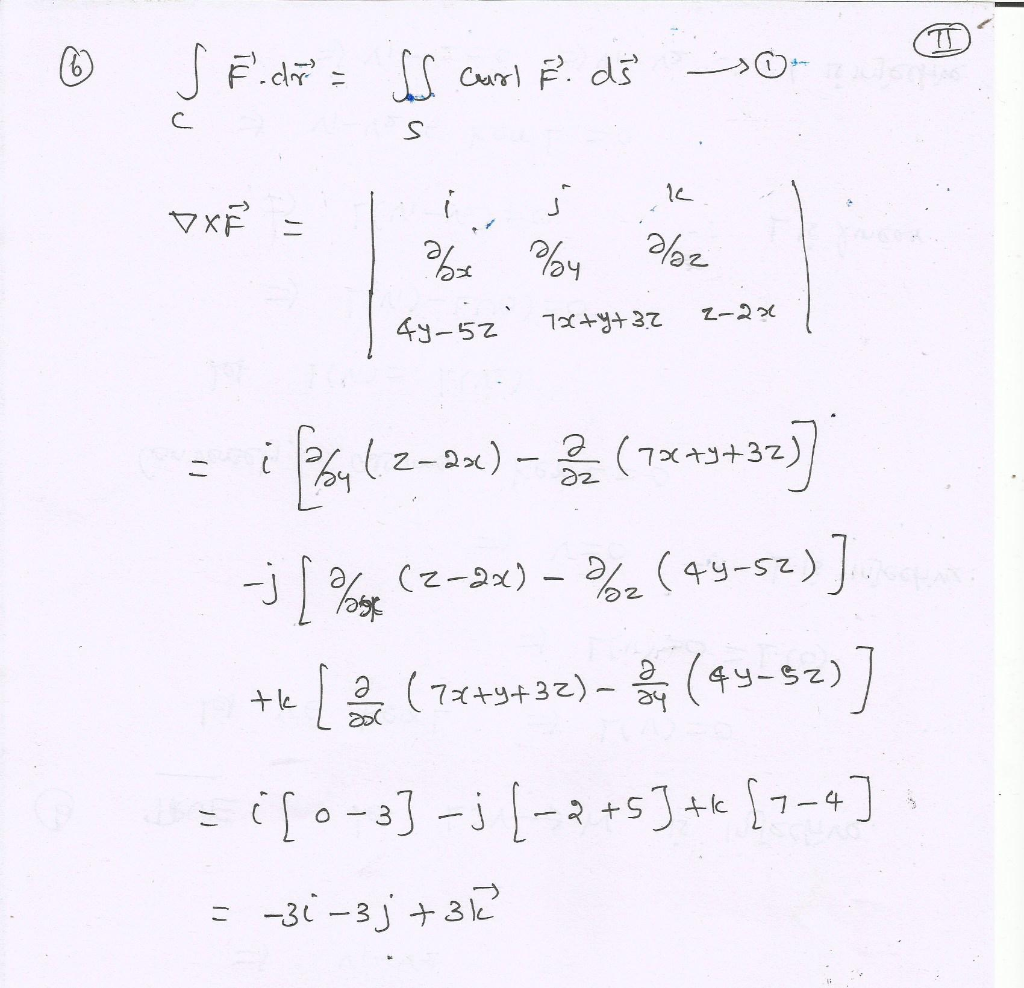 II
⑥ ∫ F⃗.dr⃗ = ∬ curl F⃗. ds⃗ ⟶ ①
C S
∇×F⃗ = | i j k |
∂/∂x ∂/∂y ∂/∂z
4y-5z 7x+y+3z z-2x
= i [∂/∂y (z-2x) - ∂/∂z (7x+y+3z)]
-j [∂/∂x (z-2x) - ∂/∂z (4y-5z)]
+k [∂/∂x (7x+y+3z) - ∂/∂y (4y-5z)]
= i[0-3] -j[-2+5] +k[7-4]
= -3i -3j +3k⃗